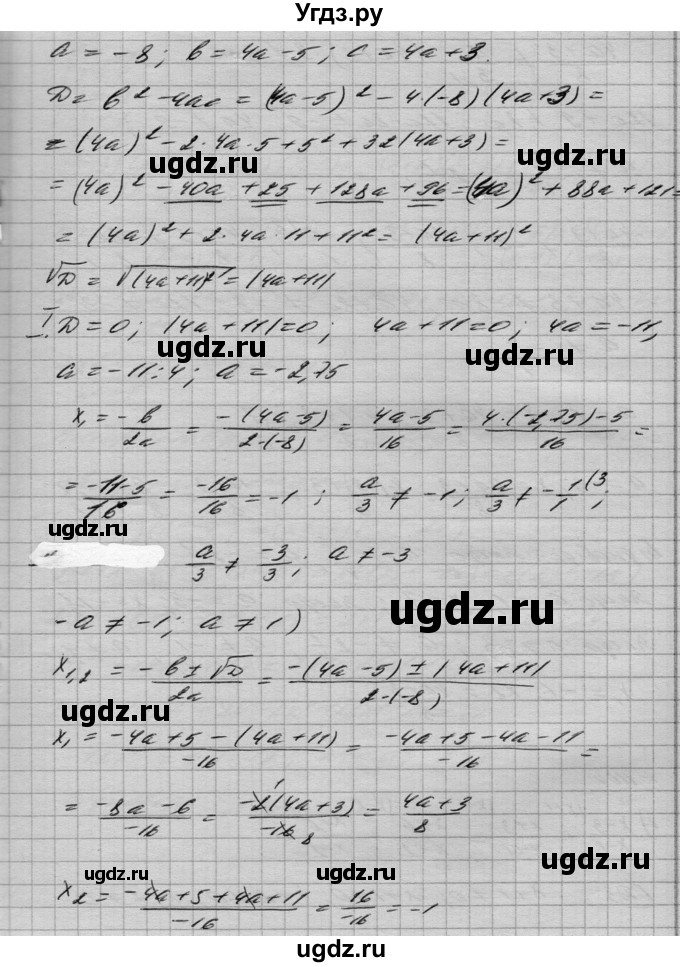 Угдз.ру
a = -8; b = 4a - 5; c = 4a + 3.
D = b² - 4ac = (4a - 5)² - 4·(-8)(4a + 3) =
= (4a)² - 2·4a·5 + 5² + 32(4a + 3) =
ugdz.ru ugdz.ru
= (4a)² - 40a + 25 + 128a + 96 = (4a)² + 88a + 121 =
= (4a)² + 2·4a·11 + 11² = (4a + 11)²
√D = √(4a+11)² = |4a+11|
I. D = 0; |4a + 11| = 0; 4a + 11 = 0; 4a = -11,
ugdz.ru ugdz.ru
a = -11:4; a = -2,75
x₁ = -b/2a = -(4a-5)/2·(-8) = 4a-5/16 = 4·(-2,75)-5/16 =
= -11-5/16 = -16/16 = -1; a/3 ≠ -1; a/3 ≠ -1/1 (3;
ugdz.ru
a/3 ≠ -3/3; a ≠ -3
ugdz.ru
-a ≠ -1; a ≠ 1)
x₁,₂ = -b ± √D/2a = -(4a-5) ± |4a+11|/2·(-8)
ugdz.ru
x₁ = -4a+5-(4a+11)/-16 = -4a+5-4a-11/-16 =
= -8a-6/-16 = -2(4a+3)/-16 8 = 4a+3/8
ugdz.ru ugdz.ru
x₂ = -4a+5+4a+11/-16 = 16/-16 = -1
ugdz.ru ugdz.ru